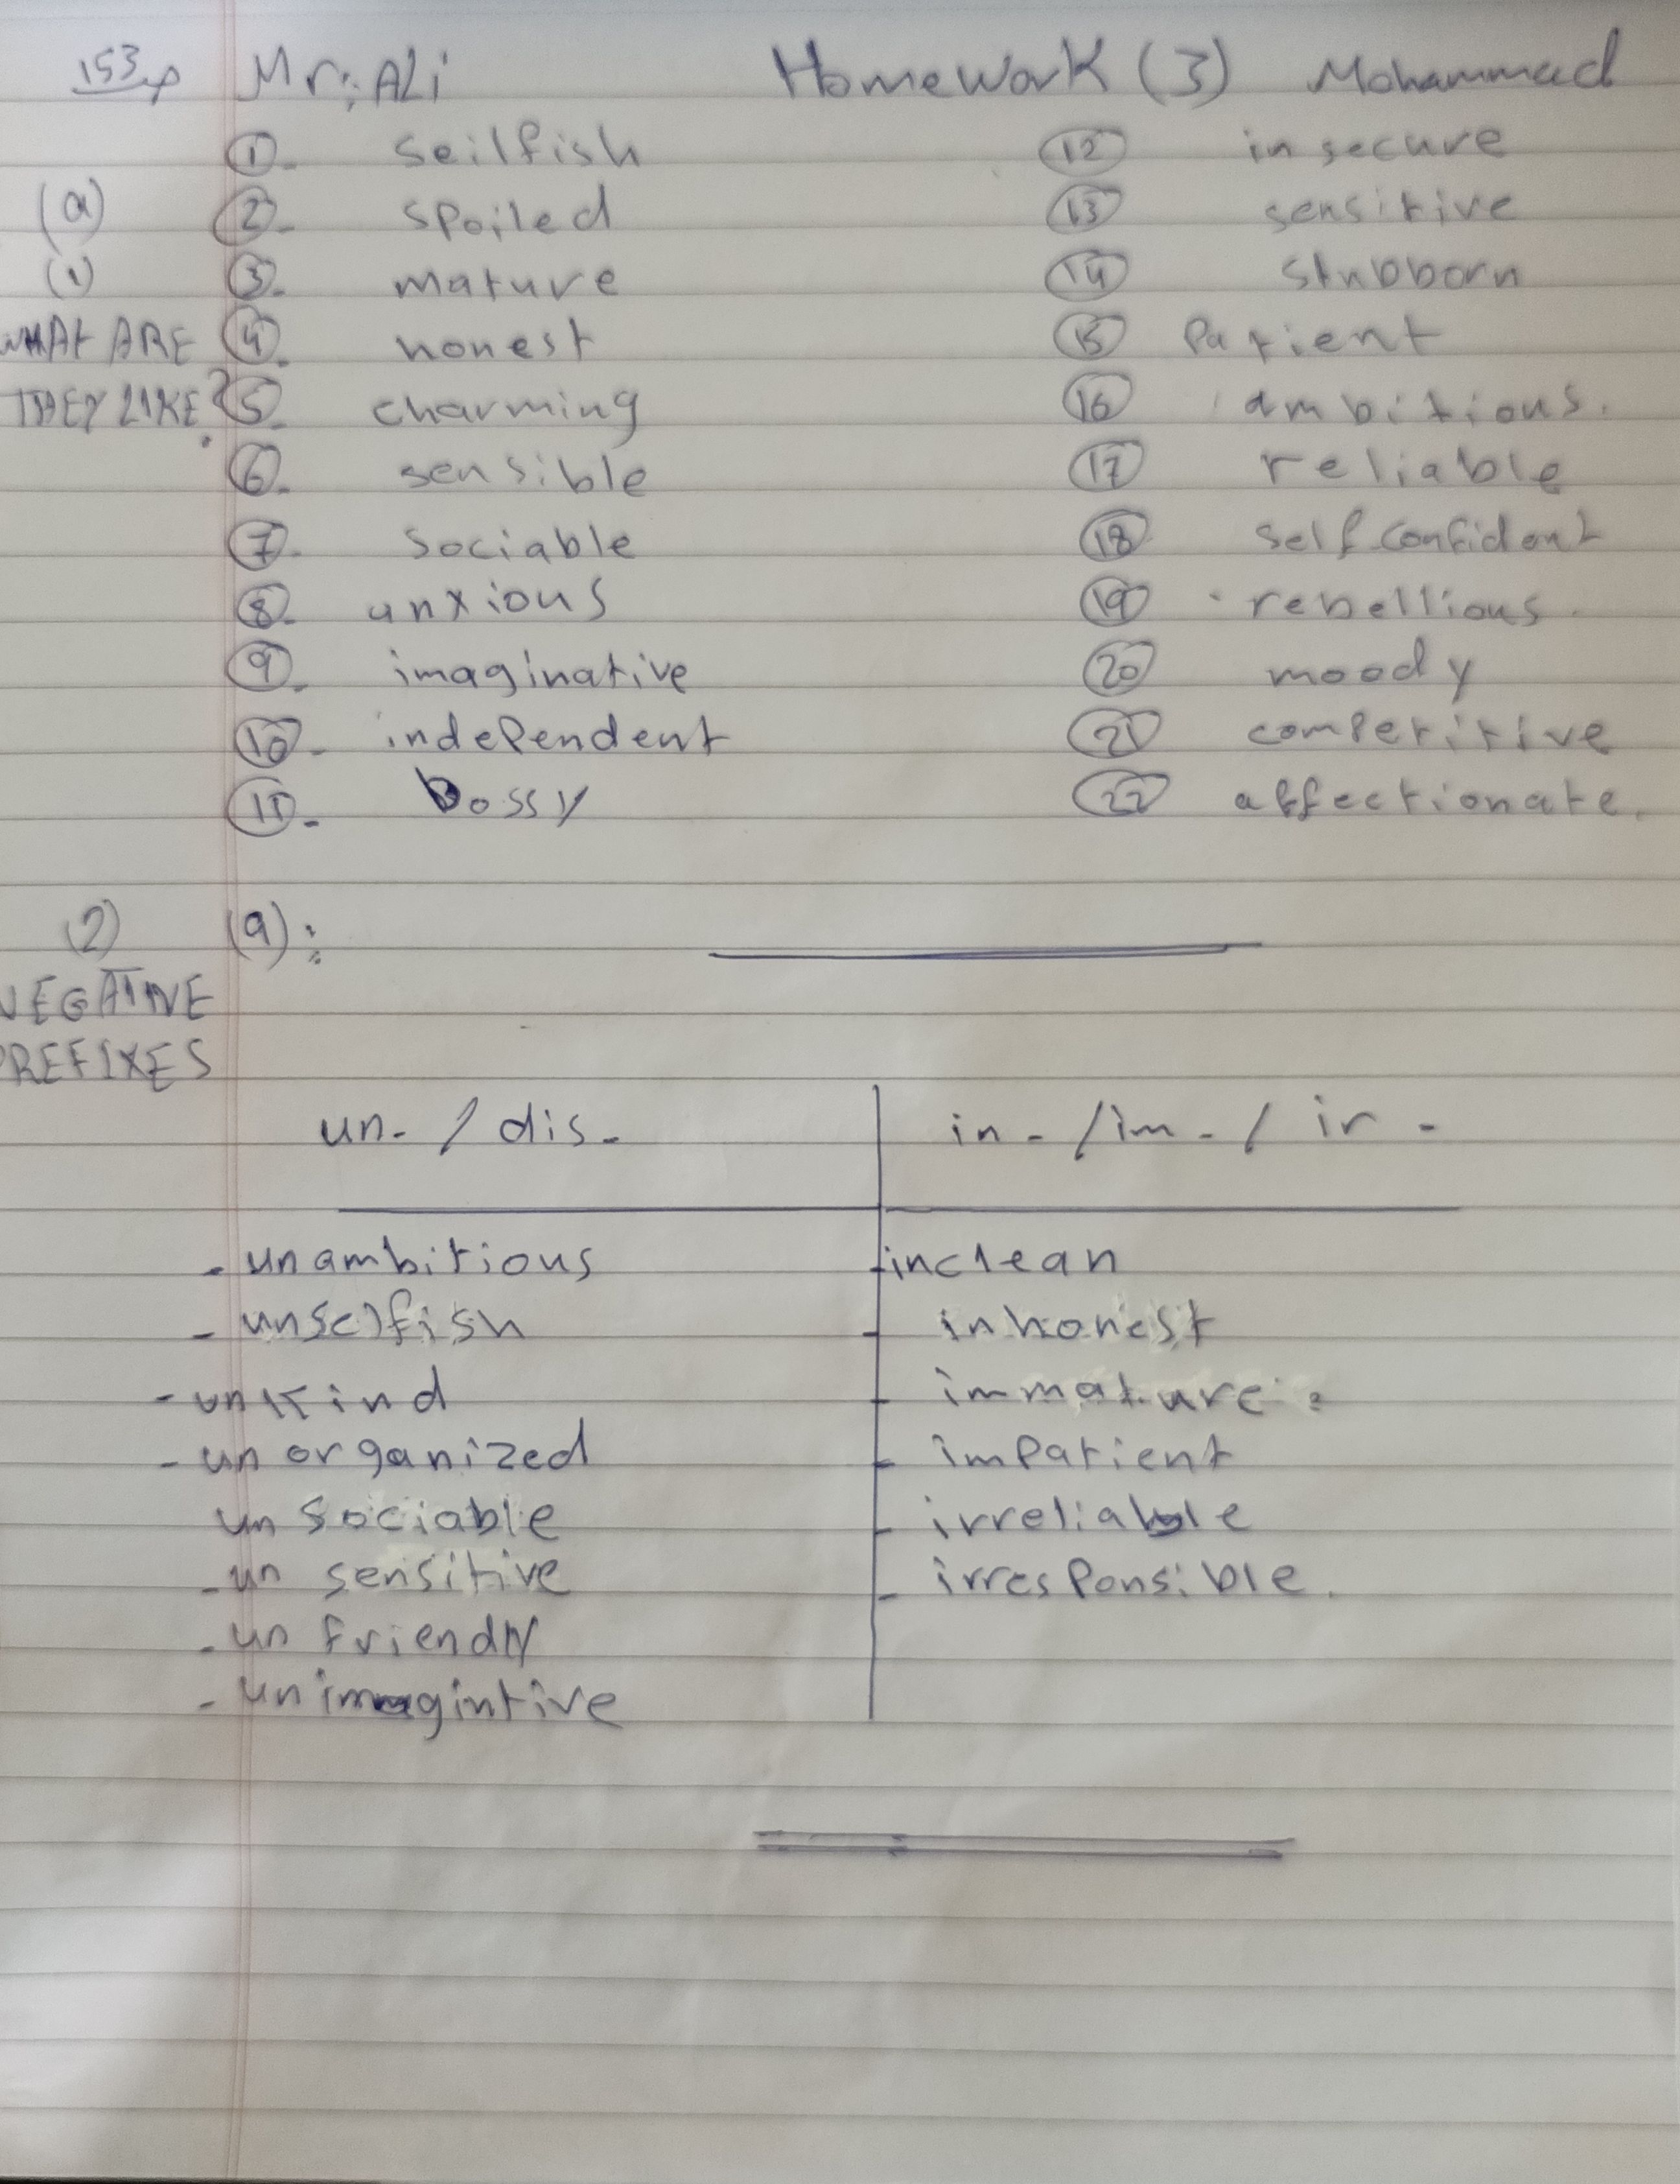 153p Mr: ALi HomeWork (3) Mohammad
(a)
(1)
WHAT ARE
THEY LIKE?
1- seilfish
2- spoiled
3- mature
4- honest
5- charming
6- sensible
7- sociable
8- anxious
9- imaginative
10- independent
11- bossy
12 insecure
13 sensitive
14 stubborn
15 Patient
16 ambitious.
17 reliable
18 self confident
19 rebellious.
20 moody
21 competitive
22 affectionate.
(2) (a):
NEGATIVE
PREFIXES
un- / dis-
- unambitious
- unselfish
- unkind
- unorganized
unsociable
- un sensitive
- un friendly
- unimagintive
in- / im- / ir-
- inclean
- inhonest
- immature
- impatient
- irreliable
- irresponsible.